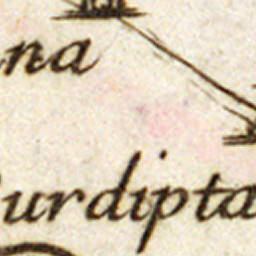 na
urdipta